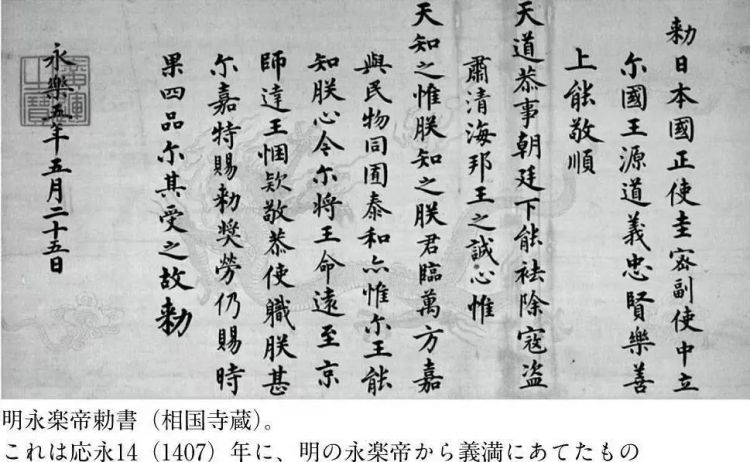 勅日本國正使圭密副使中立
尓國王源道義忠賢樂善
上能敬順
天道恭事朝廷下能祛除寇盗
肅清海邦王之誠心惟
天知之惟朕知之朕君臨萬方嘉
與民物同囿泰和亦惟尓王能
知朕心令尓将王命遠至京
師達王悃欵敬恭使職朕甚
尓嘉特賜勅奨勞仍賜時
果四品尓其受之故勅
永樂五年五月二十五日
明永楽帝勅書（相国寺蔵）。
これは応永14（1407）年に、明の永楽帝から義満にあてたもの